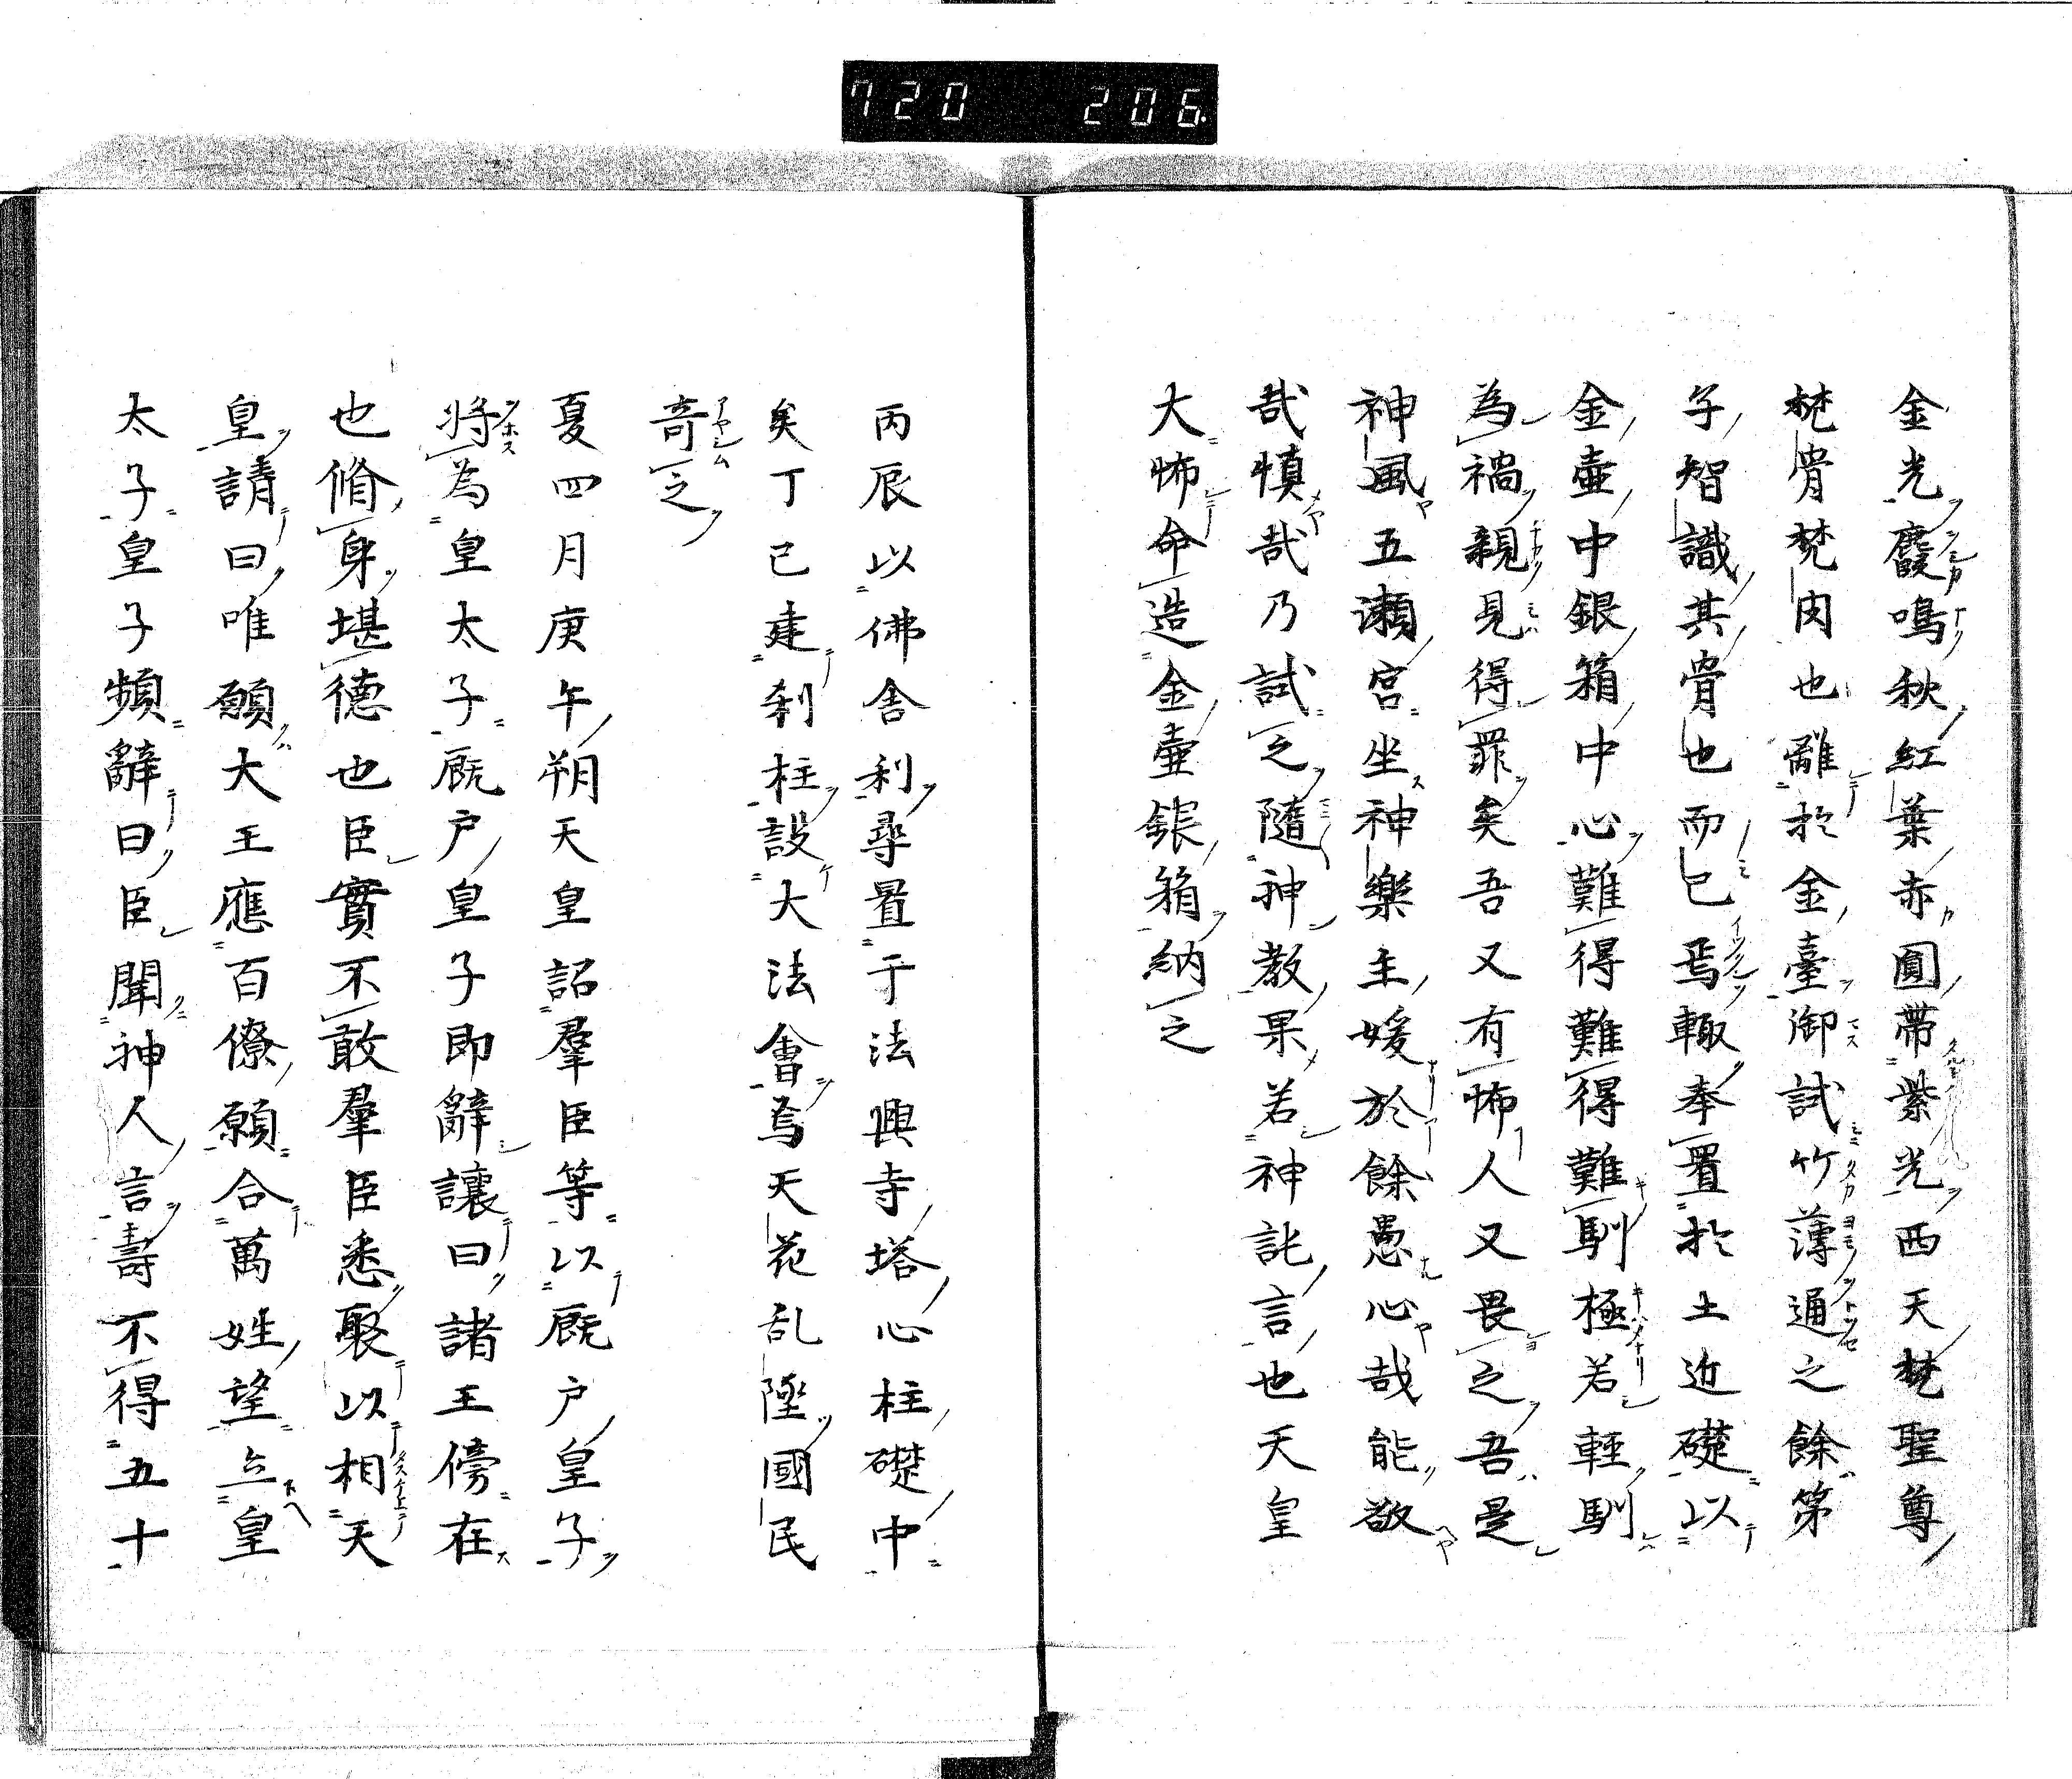 720 206
金光麚鳴秋紅葉赤圓帶紫光西天梵聖尊
梵骨梵肉也離於金臺御試竹薄通之餘第
子智識其骨也而已焉輙奉置於土近礎以
金壷中銀箱中心難得難得難馴極若輕馴
為禍親見得罪矣吾又有怖人又畏之吾是
神風五瀬宮坐神樂主媛於餘愚心哉能敬
哉慎哉乃試之隨神教果若神託言也天皇
大怖命造金壷銀箱納之
丙辰以佛舎利尋置于法興寺塔心柱礎中
矣丁巳建刹柱設大法會焉天花乱墜國民
奇之
夏四月庚午朔天皇詔羣臣等以厩戸皇子
将為皇太子厩戸皇子即辭讓曰諸王傍在
也脩身堪德也臣實不敢羣臣悉聚以相天
皇請曰唯願大王應百僚願合萬姓望立皇
太子皇子頻辭曰臣聞神人言壽不得五十